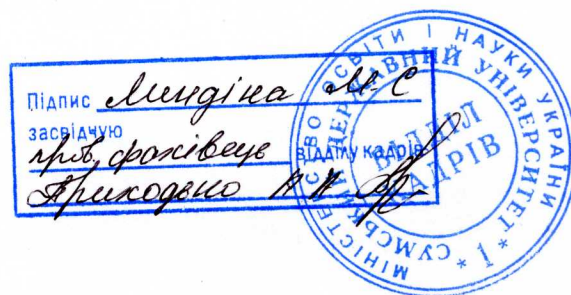 Підпис Миндіна М.С
засвідчую
пров. фахівець відділу кадрів
Приходько
МІНІСТЕРСТВО ОСВІТИ І НАУКИ УКРАЇНИ
СУМСЬКИЙ ДЕРЖАВНИЙ УНІВЕРСИТЕТ
ВІДДІЛ
КАДРІВ
* 1 *